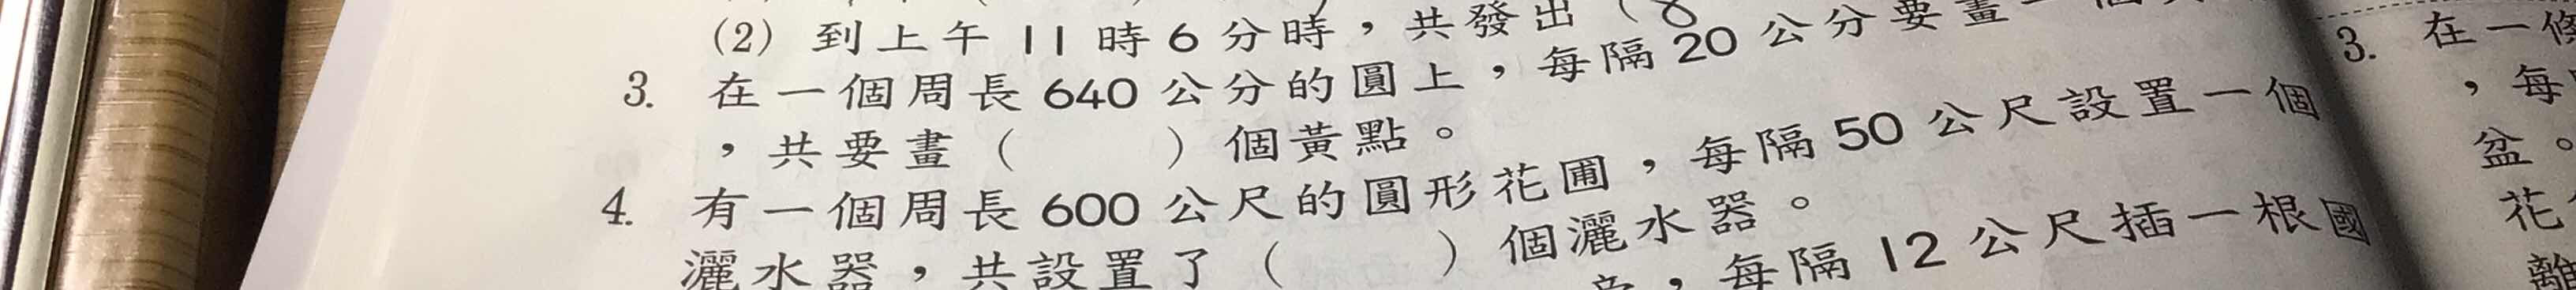 (2) 到上午 11 時 6 分時，共發出（8
3. 在一個周長 640 公分的圓上，每隔 20 公分要畫一個
，共要畫（　　）個黃點。
4. 有一個周長 600 公尺的圓形花圃，每隔 50 公尺設置一個
灑水器，共設置了（　　）個灑水器。
，每隔 12 公尺插一根國
3. 在一條
，每
盆。
花
離